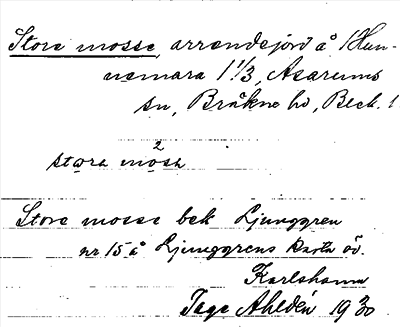 Stora mosse, arrendejord å Hun-
nemara 1 1/3, Asarums
sn, Bräkne hd, Blek.
stora mosa
2
Stora mosse bek Ljunggren
nr 15 å Ljunggrens karta öv.
Karlshamn
Tage Ahldén 1930